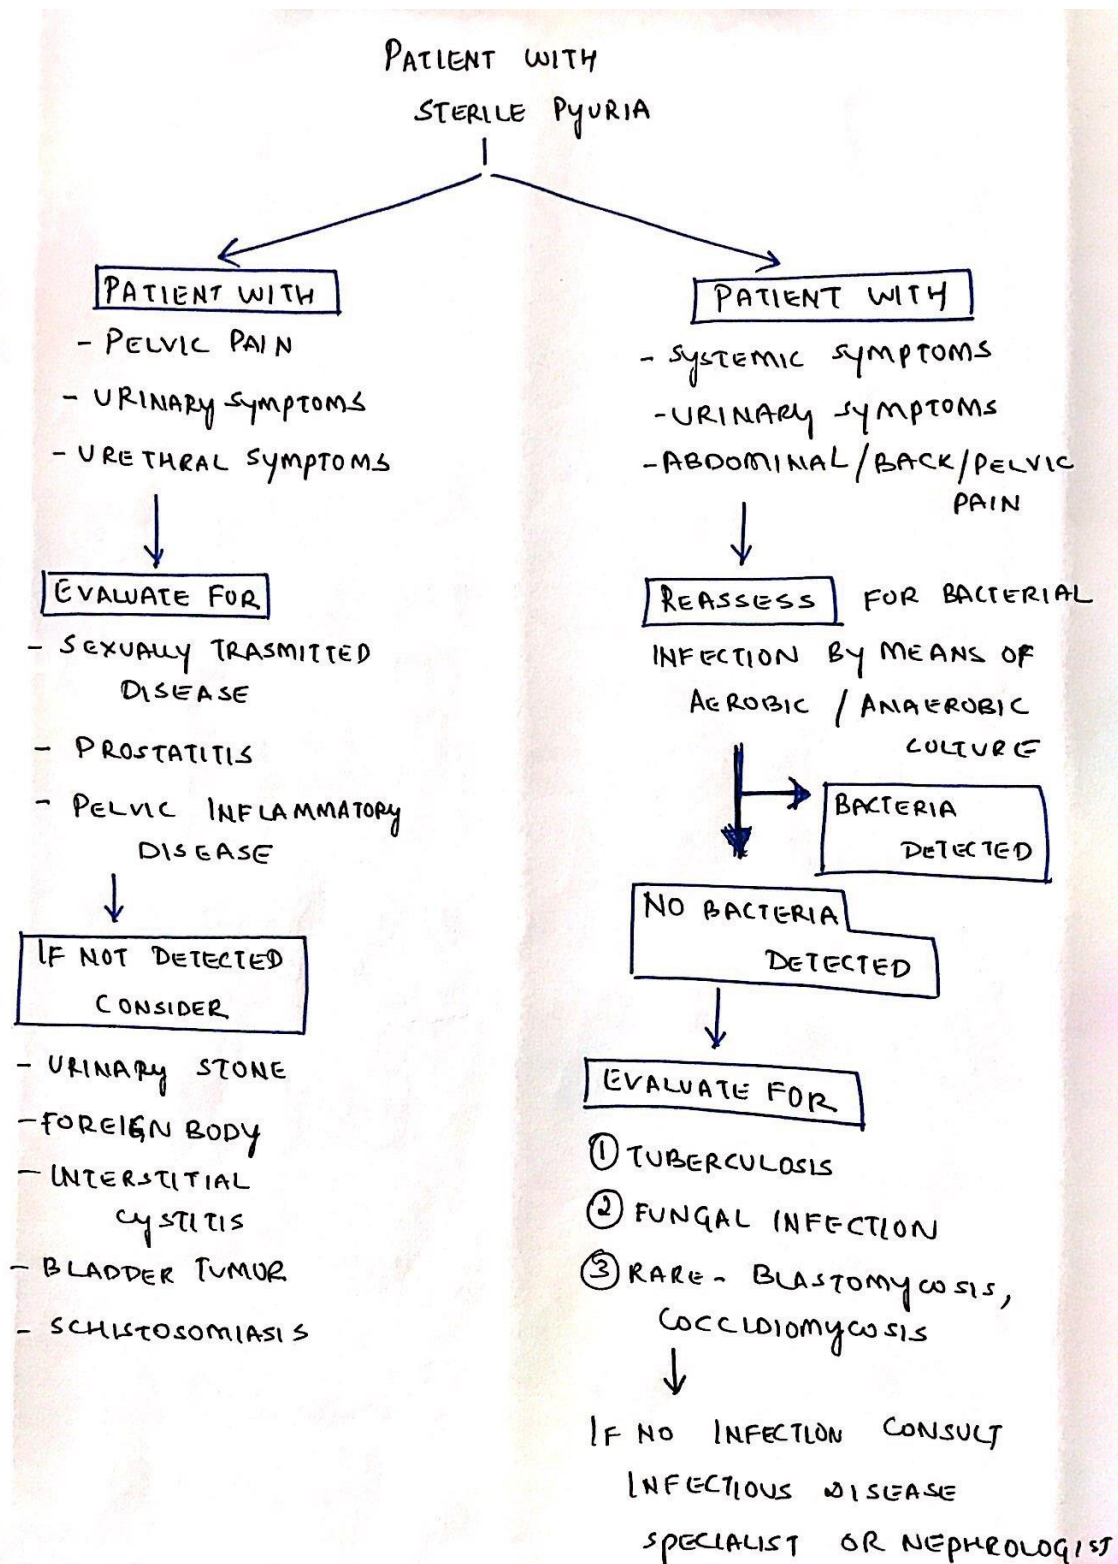 PATIENT WITH
STERILE PYURIA
PATIENT WITH
- PELVIC PAIN
- URINARY SYMPTOMS
- URETHRAL SYMPTOMS
EVALUATE FOR
- SEXUALLY TRASMITTED
DISEASE
- PROSTATITIS
- PELVIC INFLAMMATORY
DISEASE
IF NOT DETECTED
CONSIDER
- URINARY STONE
- FOREIGN BODY
- INTERSTITIAL
CYSTITIS
- BLADDER TUMOR
- SCHISTOSOMIASIS
PATIENT WITH
- SYSTEMIC SYMPTOMS
- URINARY SYMPTOMS
- ABDOMINAL/BACK/PELVIC
PAIN
REASSESS FOR BACTERIAL
INFECTION BY MEANS OF
AEROBIC / ANAEROBIC
CULTURE
BACTERIA
DETECTED
NO BACTERIA
DETECTED
EVALUATE FOR
① TUBERCULOSIS
② FUNGAL INFECTION
③ RARE - BLASTOMYCOSIS,
COCCIDIOMYCOSIS
IF NO INFECTION CONSULT
INFECTIOUS DISEASE
SPECIALIST OR NEPHROLOGIST